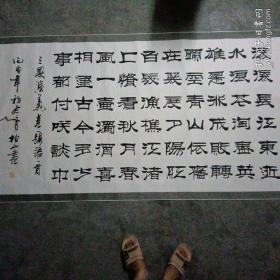 滚滚長江東逝
水浪花淘盡英
雄是非成敗轉
頭空青山依舊
在幾度夕陽紅
白髮漁樵江渚
上慣看秋月春
風一壺濁酒喜
相逢古今多少
事都付咲談中
三國演義卷首語一首
丙戌年初